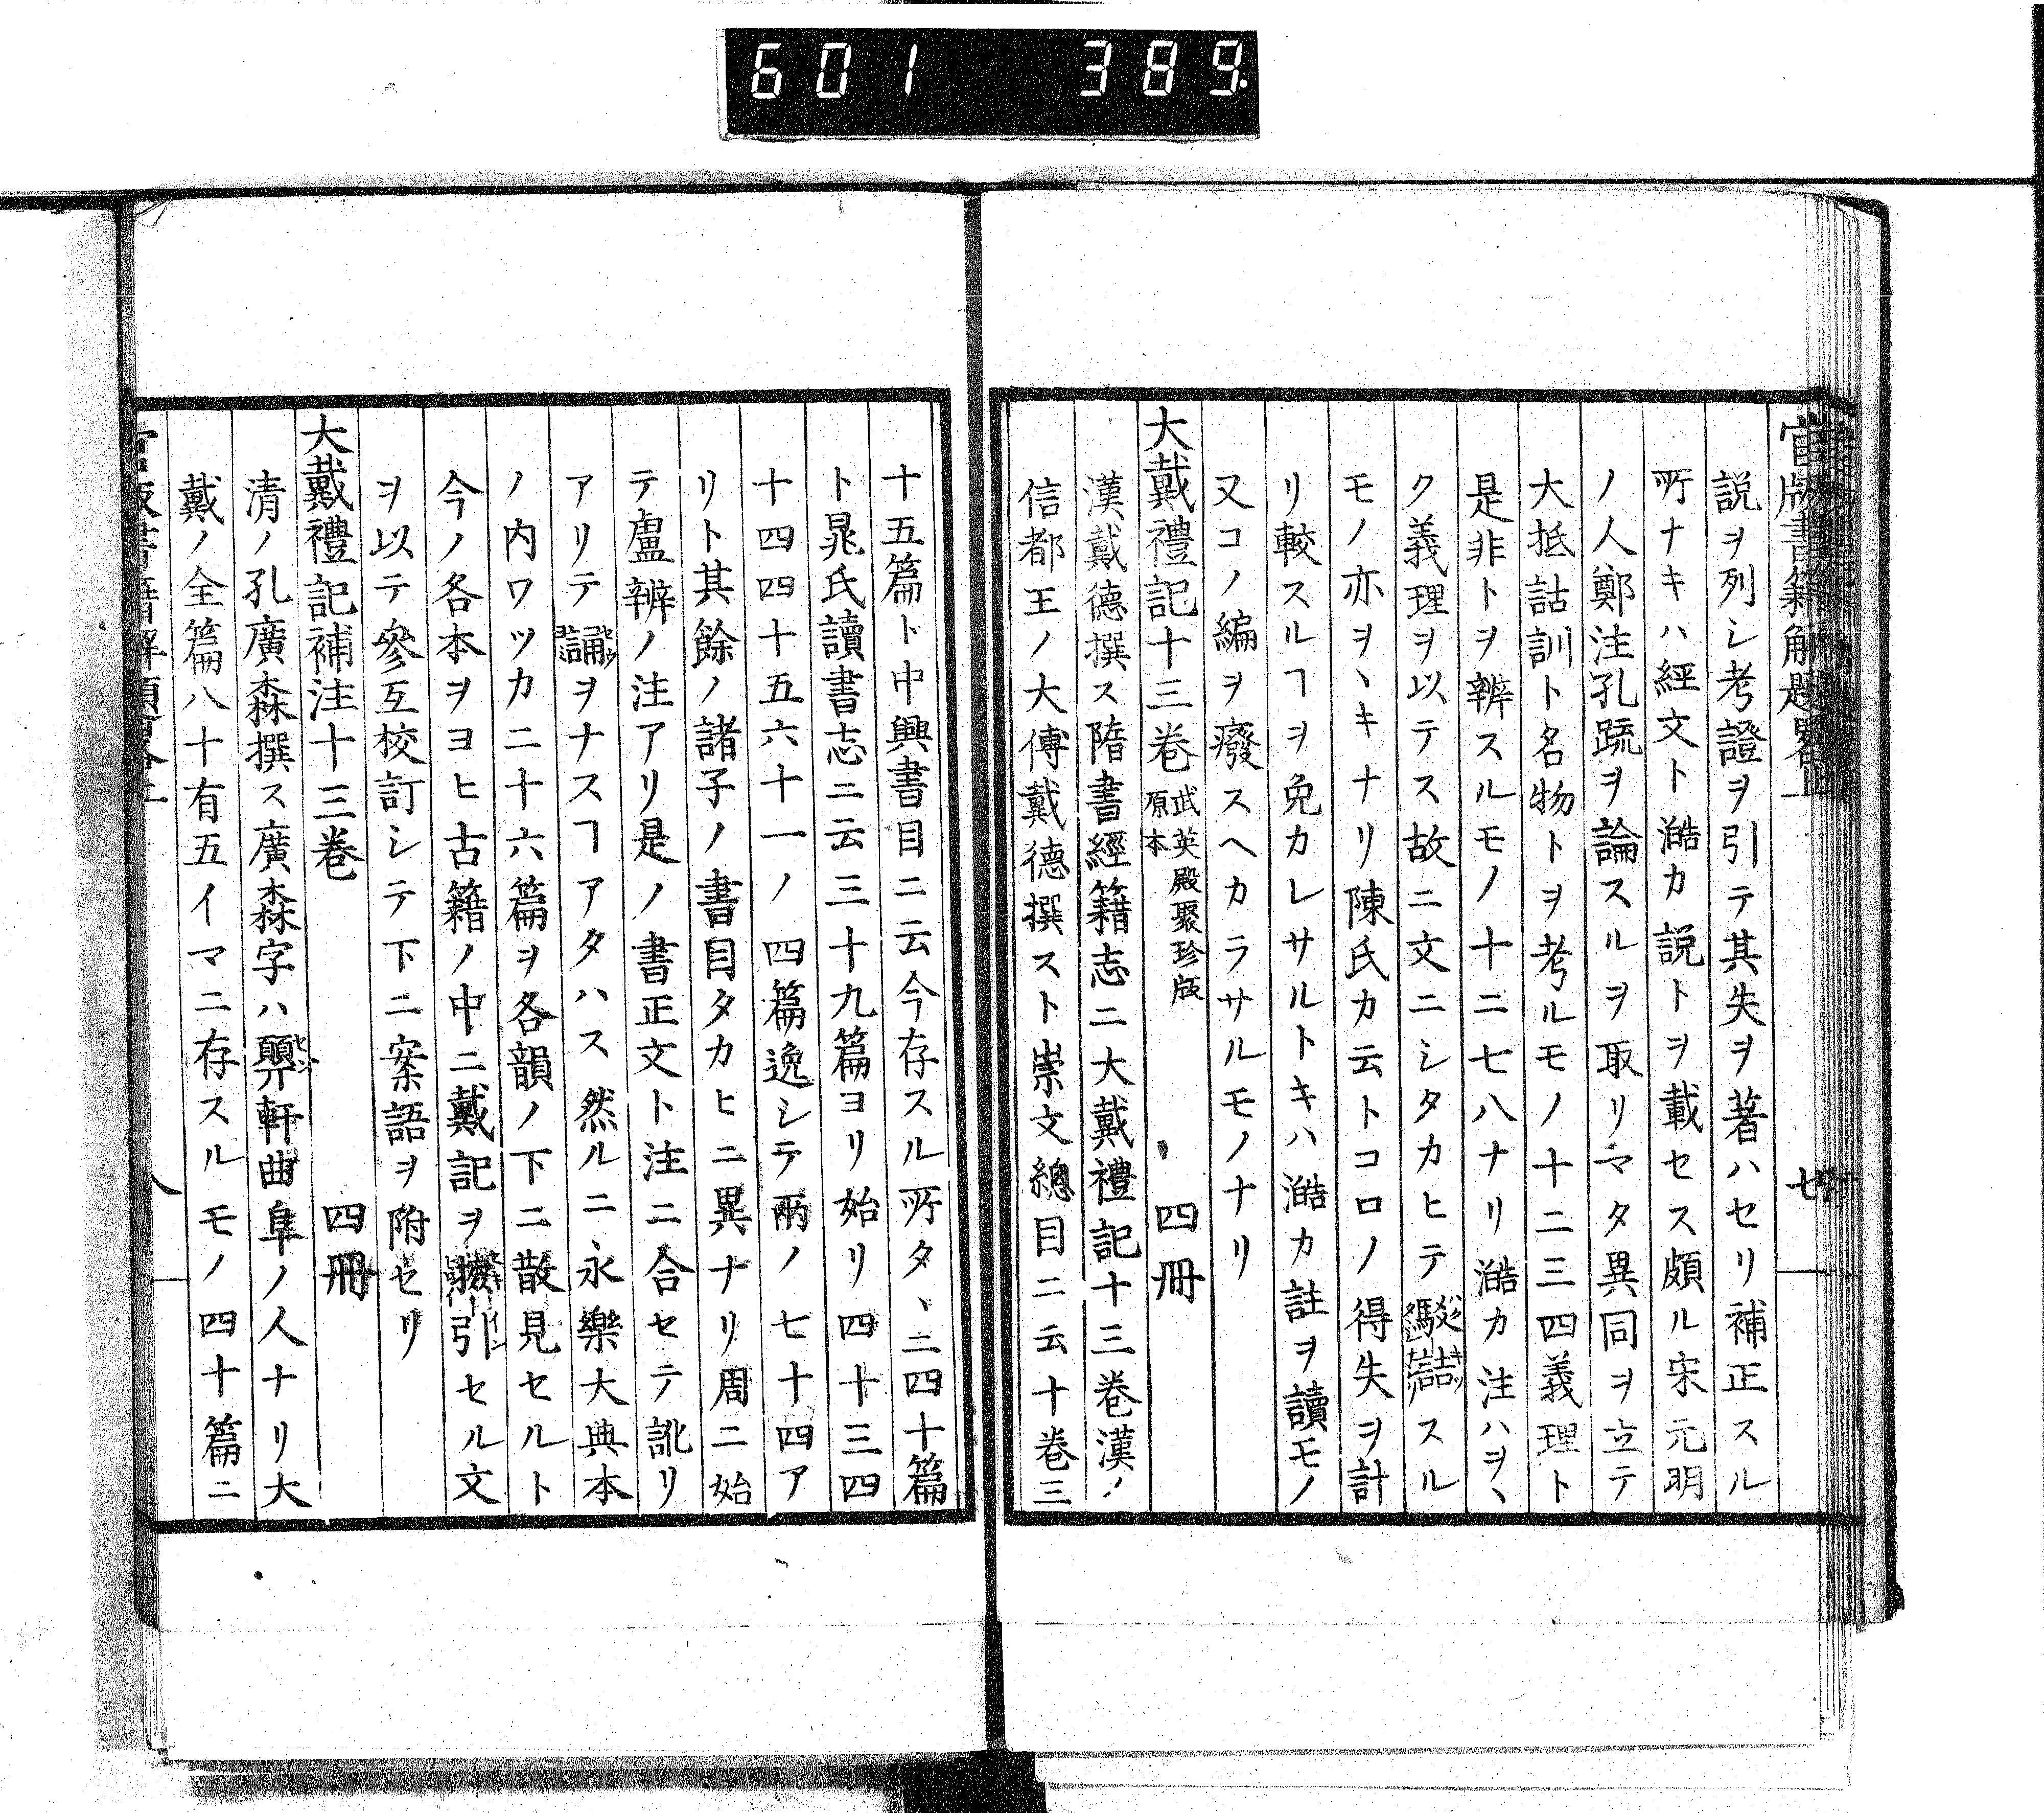 601 389
官版書籍解題畧上 七
説ヲ列シ考證ヲ引テ其失ヲ著ハセリ補正スル
所ナキハ經文ト澔カ説トヲ載セス頗ル宋元明
ノ人鄭注孔疏ヲ論スルヲ取リマタ異同ヲ立テ
大抵詁訓ト名物トヲ考ルモノ十ニ三四義理ト
是非トヲ辨スルモノ十ニ七八ナリ澔カ注ハヲヽ
ク義理ヲ以テス故ニ文ニシタカヒテ駁詰スル
モノ亦ヲヽキナリ陳氏カ云トコロノ得失ヲ計
リ較スルヿヲ免カレサルトキハ澔カ註ヲ讀モノ
又コノ編ヲ癈スヘカラサルモノナリ
大戴禮記十三巻 武英殿聚珍版原本 四冊
漢戴德撰ス隋書經籍志ニ大戴禮記十三巻漢ノ
信都王ノ大傅戴德撰スト崇文總目ニ云十巻三
十五篇ト中興書目ニ云今存スル所タヽニ四十篇
ト晁氏讀書志ニ云三十九篇ヨリ始リ四十三四
十四四十五六十一ノ四篇逸シテ兩ノ七十四ア
リト其餘ノ諸子ノ書目タカヒニ異ナリ周ニ始
テ盧辨ノ注アリ是ノ書正文ト注ニ合セテ訛リ
アリテ誦ヲナスヿアタハス然ルニ永樂大典本
ノ内ワツカニ十六篇ヲ各韻ノ下ニ散見セルト
今ノ各本ヲヨヒ古籍ノ中ニ戴記ヲ援引セル文
ヲ以テ參互校訂シテ下ニ案語ヲ附セリ
大戴禮記補注十三巻 四冊
清ノ孔廣森撰ス廣森字ハ顨軒曲阜ノ人ナリ大
戴ノ全篇八十有五イマニ存スルモノ四十篇ニ
八